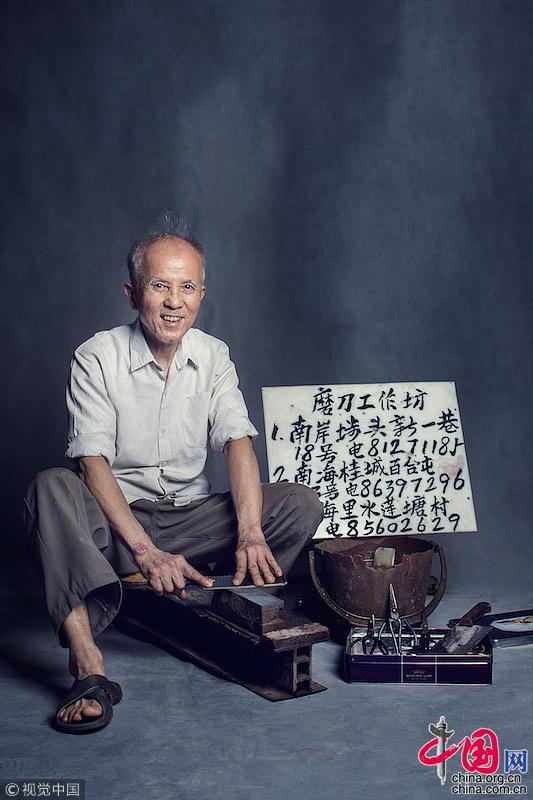 磨刀工作坊
1. 南岸塘头新一巷
18号电81271185
2. 南海桂城百合屯
号电86397296
海里水莲塘村
电85602629
©视觉中国
中国网
china.org.cn
china.com.cn